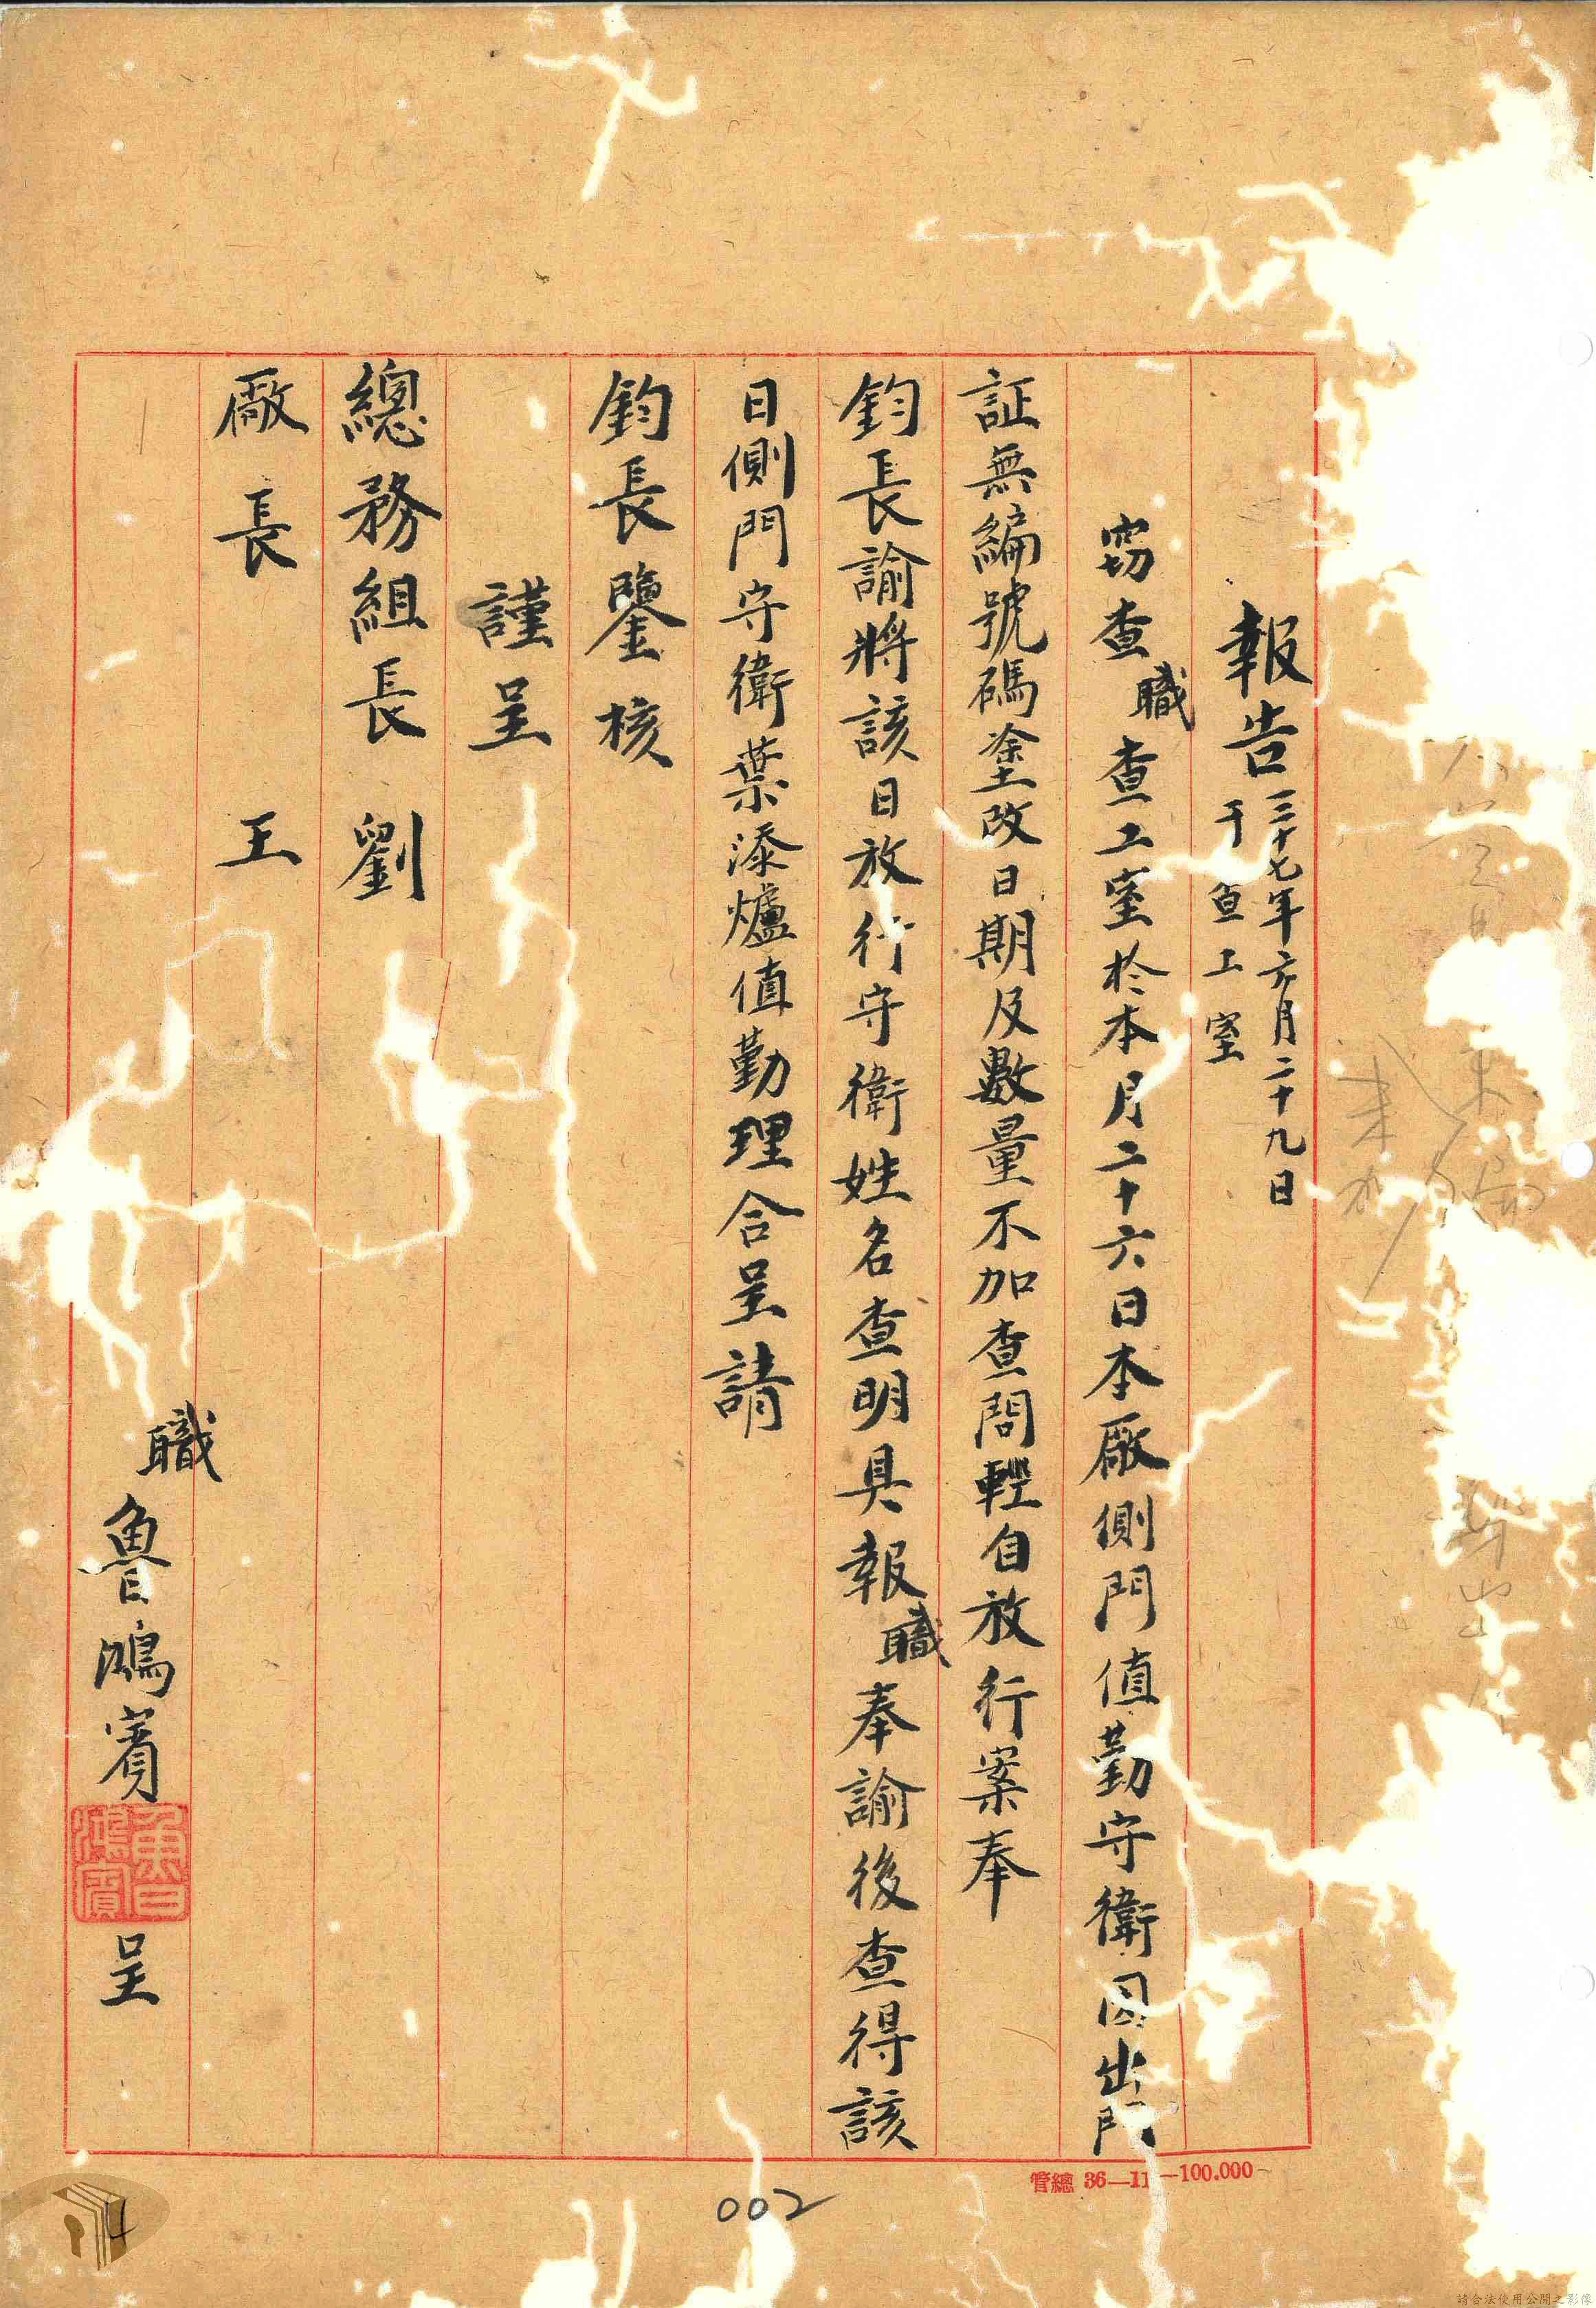 報告 三十七年六月二十九日
于查工室
窃查職查工室於本月二十六日本廠側門值勤守衛因出門
証無編號碼塗改日期及數量不加查問輕自放行案奉
鈞長諭將該日放行守衛姓名查明具報職奉諭後查得該
日側門守衛葉添爐值勤理合呈請
鈞長鑒核
謹呈
總務組長 劉
廠長 王
職魯鴻賓呈
魯鴻賓
管總 36—11—100.000
002
請合法使用公開之影像